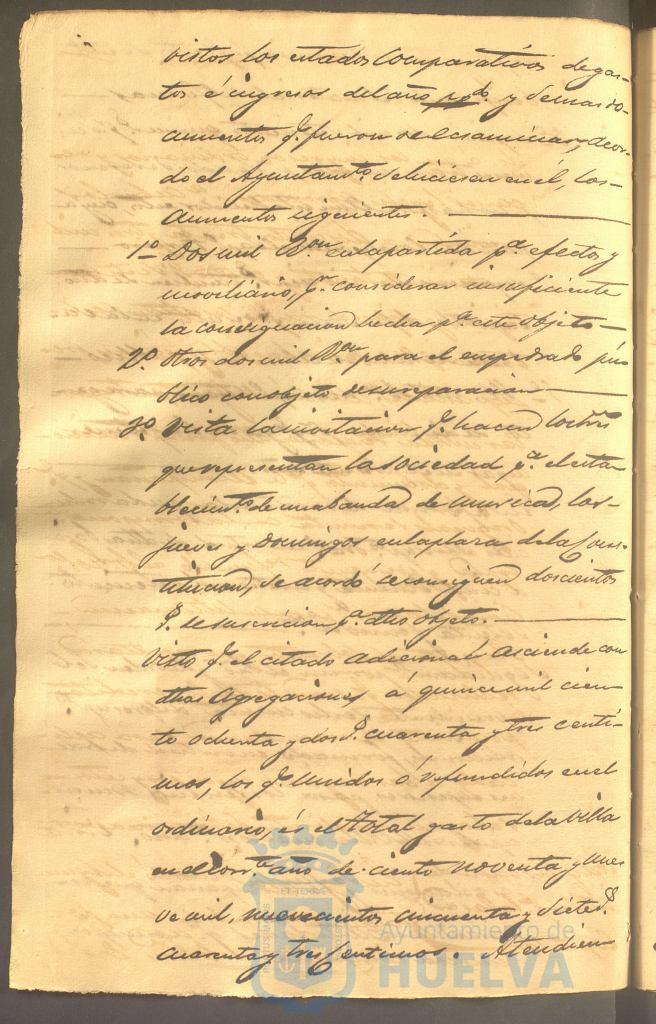 vistos los estados Comparativos de gas-
tos é ingresos del año pdo. y demas do-
cumentos q. fueron de examinar, acor-
do el Ayuntamto. se hiciesen en él, los
aumentos siguientes.
1º Dos mil Rs. von en la partida pa. efectos y
moviliario, pr. considerar insuficiente
la consignacion hecha pa. este objeto
2º Otros dos mil Rs. von para el empedrado pú-
blico con objeto de su reparacion
3º Vista la invitacion q. hacen los Sres
que representan la sociedad pa. el esta
blecimto. de una banda de musica, los
jueves y Domingos en la plaza de la Cons-
titucion, se acordó se consignen doscientos
rs. de suscricion pa. dho objeto.
Visto q. el citado adicional asciende con
dhas agregaciones á quince mil cien-
to ochenta y dos rs. cuarenta y tres centi-
mos, los q. unidos ó refundidos en el
ordinario, és el total gasto de la Villa
en el corrte. año de ciento noventa y nue
ve mil, nuevecientos cincuenta y siete rs.
cuarenta y tres Centimos. Atendien
Ayuntamiento de
HUELVA